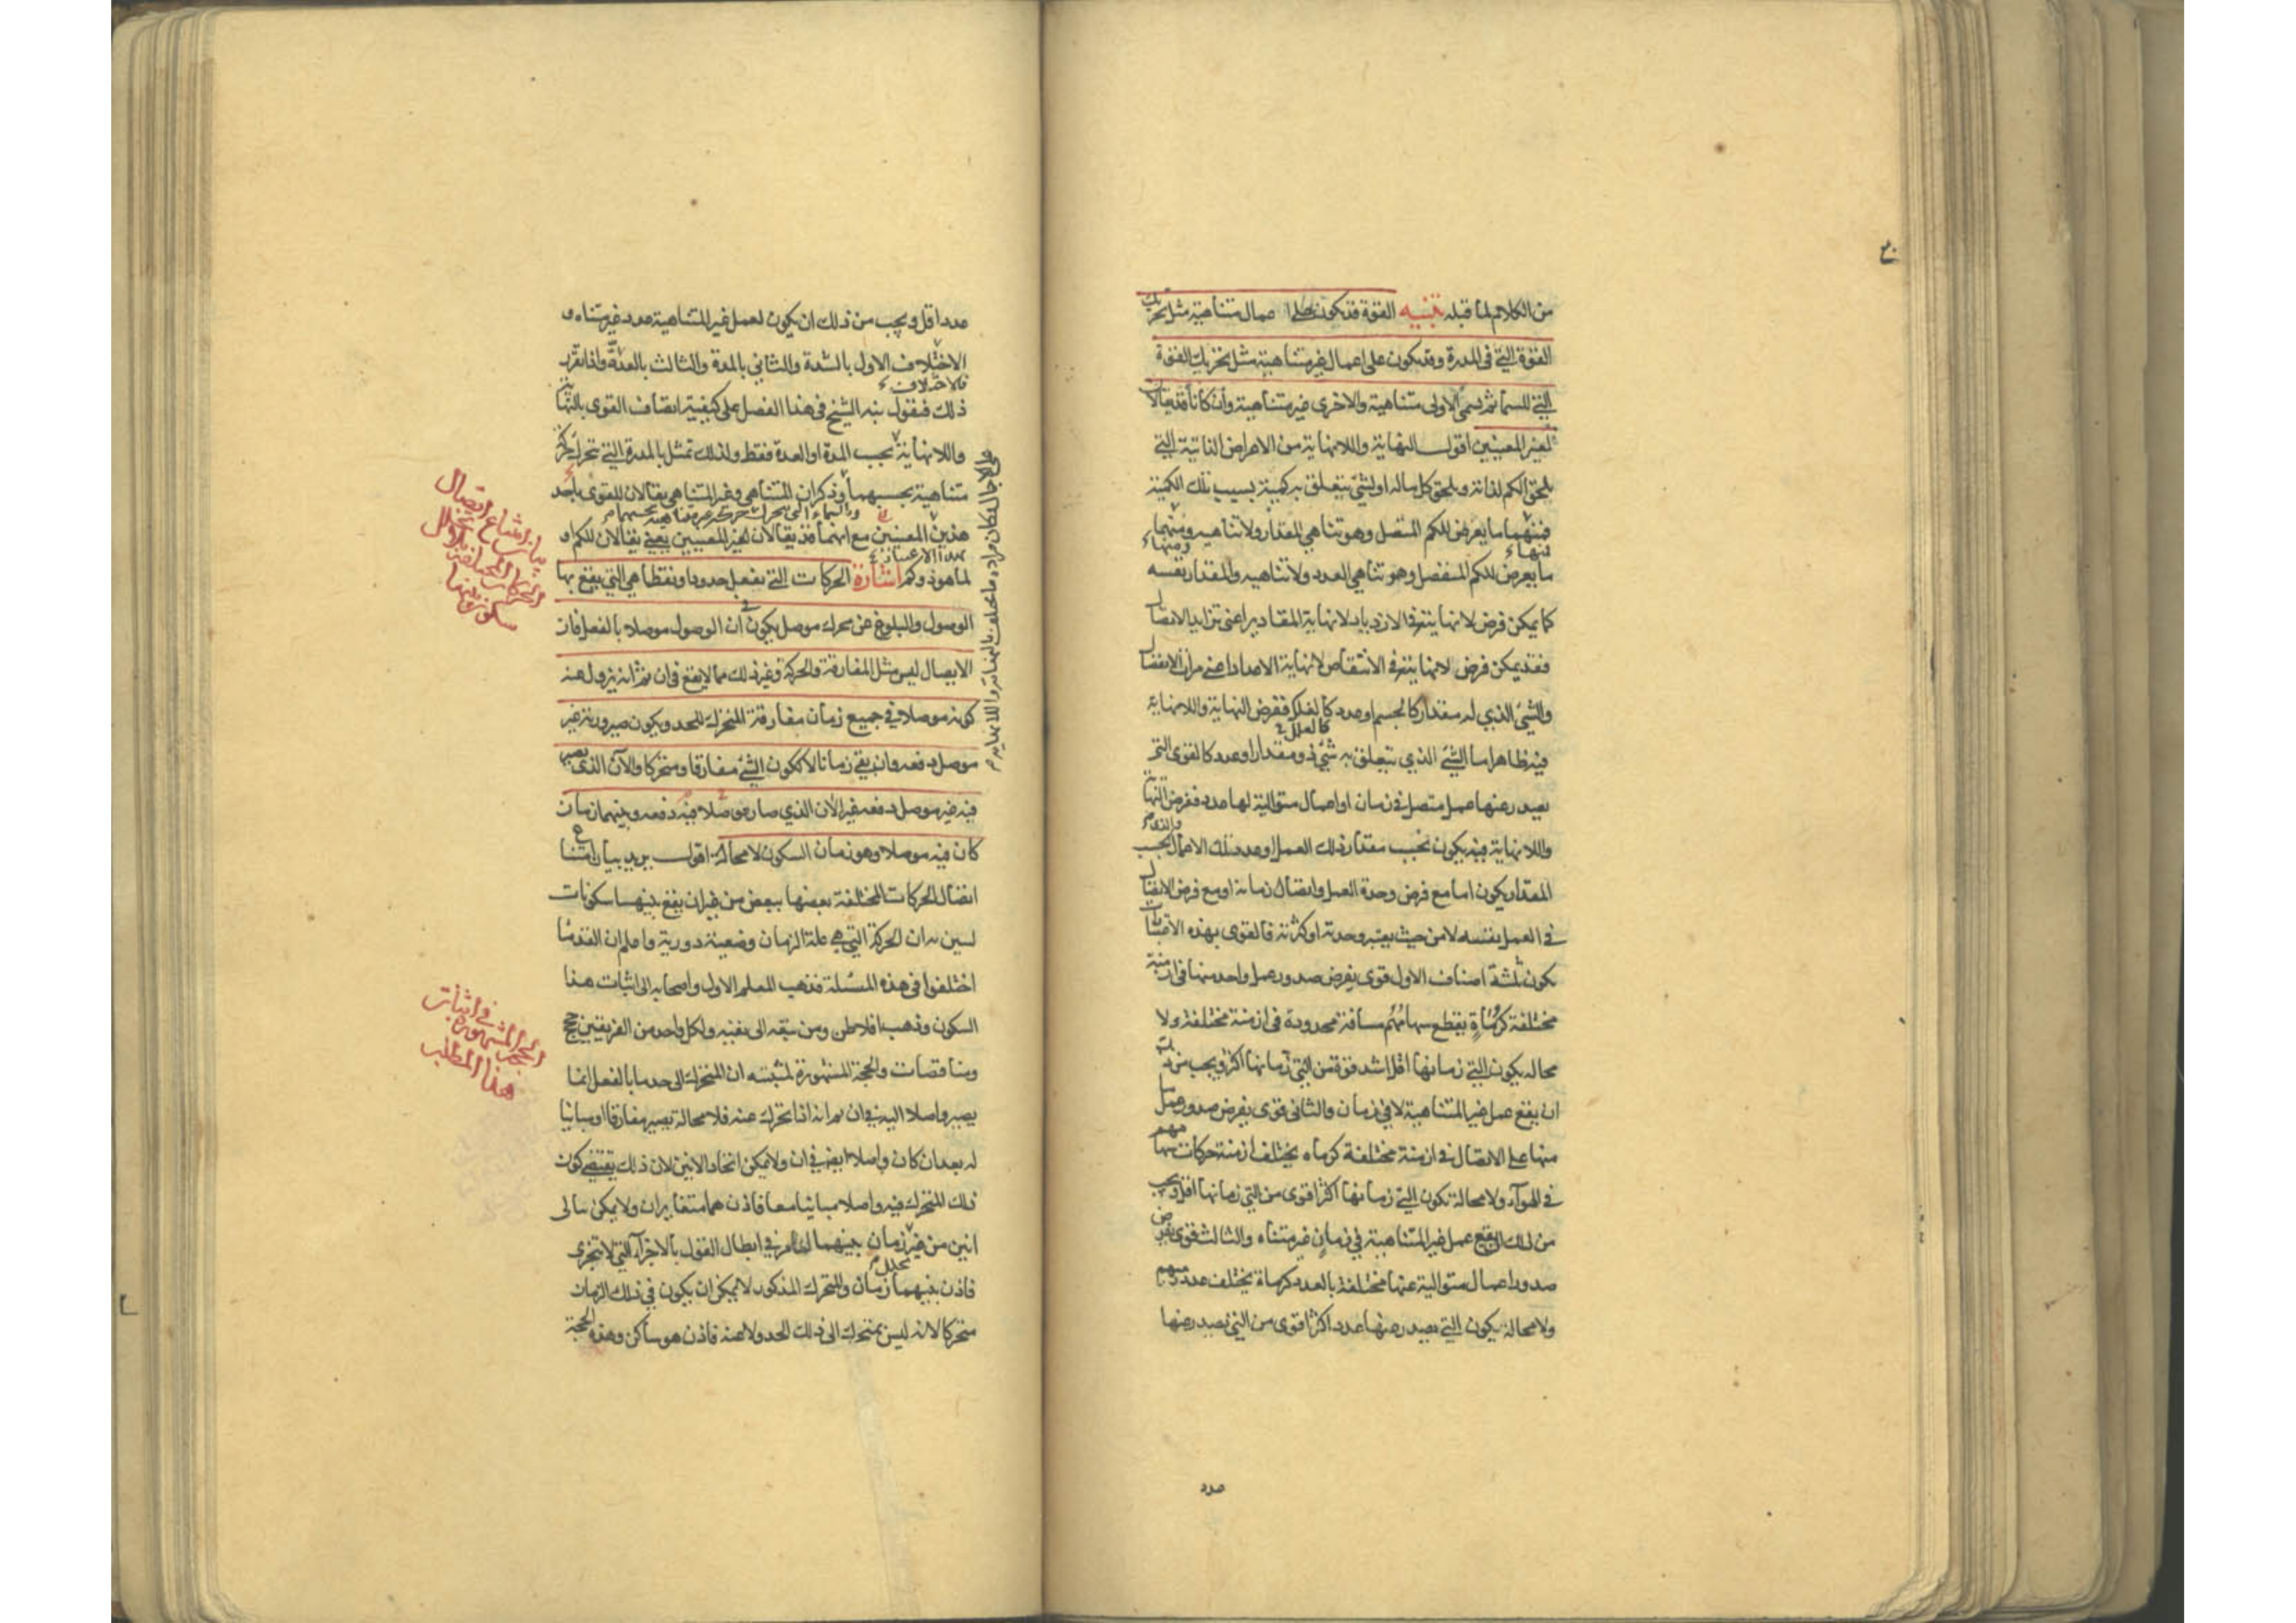 من الكلام لما قبله تنبيه القوة قد تكون على اعمال متناهية مثل تحريك
القوة التي في المدرة وقد يكون على اعمال غير متناهية مثل تحريك القوة
التي للسماء ثم يسمى الاولى متناهية والاخرى غير متناهية وان كانا قد يقالان
لغير المعنيين اقول النهاية واللانهاية من الاعراض الذاتية التي
يلحق الكم لذاته ويلحق كل ماله او لشئ يتعلق به كمية بسبب تلك الكمية
فمنهما ما يعرض للكم المتصل وهو تناهي المقدار ولا تناهيه ومنهما
ما يعرض للكم المنفصل وهو تناهي العدد ولا تناهيه والمقدار نفسه
كما يمكن فرض لا نهاية في الازدياد لا نهاية المقادير اعنى تزايد الاتصال
فقد يمكن فرض لا نهاية في الانتقاص لا نهاية الاعداد اعنى مراتب الانفصال
والشئ الذي له مقدار كالجسم او عدد كالعلل ففرض النهاية واللانهاية
فيه ظاهر اما الشئ الذي يتعلق به شئ ذو مقدار او عدد كالقوى التي
يصدر عنها عمل متصل في زمان او اعمال متوالية لها عدد ففرض النهاية
واللانهاية فيه يكون بحسب مقدار ذلك العمل او عدد تلك الاعمال والذي بحسب
المقدار يكون اما مع فرض وحدة العمل واتصال زمانه او مع فرض الاتصال
في العمل نفسه لا من حيث يعتبر وحدته او كثرته فالقوى بهذه الاعتبارات
يكون ثلثة اصناف الاول قوى يفرض صدور عمل واحد منها في ازمنة
مختلفة كرماة يقطع سهامهم مسافة محدودة في ازمنة مختلفة ولا
محالة يكون التي زمانها اقل اشد قوة من التي زمانها اكثر ويجب من ذلك
ان يقع عمل غير المتناهية لا في زمان والثاني قوى يفرض صدور عمل
منها على الاتصال في ازمنة مختلفة كرماة يختلف ازمنة حركات سهامهم
في الهوآء ولا محالة تكون التي زمانها اكثر اقوى من التي زمانها اقل ويجب
من ذلك ان يقع عمل غير المتناهية في زمان غير متناه والثالث قوى يفرض
صدور اعمال متوالية عنها مختلفة بالعدد كرماة يختلف عدد رميهم
ولا محالة يكون التي يصدر عنها عدد اكثر اقوى من التي يصدر عنها
عدد
عدد اقل ويجب من ذلك ان يكون لعمل غير المتناهية عدد غير متناه و
الاختلاف الاول بالشدة والثاني بالمدة والثالث بالعدة واذا تقرر
فالاختلاف
ذلك فنقول نبه الشيخ في هذا الفصل على كيفية اتصاف القوى بالنهاية
واللانهاية بحسب المدة او العدة فقط ولذلك تمثل بالمدرة التي تحرك حركة
متناهية بحسبهما وذكر ان المتناهي وغير المتناهي يقالان للقوى باحد
والسماء التي تحرك حركة غير متناهية بحسبهما
هذين المعنيين مع انهما قد يقالان لغير المعنيين يعني يقالان للكم او
لما هو ذو كم اشارة الحركات التي يفعل حدودا ونقطا هي التي يقع بها
الوصول والبلوغ عن محرك موصل يكون في ان الوصول موصلا بالفعل فان
الايصال ليس مثل المفارقة والحركة وغير ذلك مما لا يقع في ان ثم انه يزول عنه
كونه موصلا في جميع زمان مفارقة المتحرك للحد ويكون صيرورته غير
موصل دفعه وان بقي زمانا لا ككون الشئ مفارقا ومتحركا والآن الذي يصير
فيه غير موصل دفعه غير الآن الذي صار موصلا فيه دفعه وبينهما زمان
كان فيه موصلا وهو زمان السكون لا محالة اقول يريد بيان امتناع
اتصال الحركات المختلفة بعضها ببعض من غير ان يقع بينهما سكونات
ليبين به ان الحركة التي هي علة الزمان وضعية دورية واعلم ان القدمآء
اختلفوا في هذه المسئلة فذهب المعلم الاول واصحابه الى اثبات هذا
السكون وذهب افلاطن ومن تبعه الى نفيه ولكل واحد من الفريقين حجج
ومناقضات والحجة المشهورة لمثبته ان المتحرك الى حد ما بالفعل انما
يصير واصلا اليه في ان ثم انه اذا تحرك عنه فلا محالة يصير مفارقا او مباينا
له بعد ان كان واصلا ايضا في ان ولا يمكن اتحاد الانين لان ذلك يقتضي كون
ذلك المتحرك فيه واصلا مباينا معا فاذن هما متغايران ولا يمكن تتالى
انين من غير تخلل زمان بينهما لما مر في ابطال القول بالاجزآء التي لا تتجزى
فاذن بينهما زمان والمتحرك المذكور لا يمكن ان يكون في ذلك الزمان
متحركا لانه ليس بمتحرك الى ذلك الحد ولا عنه فاذن هو ساكن وهذه الحجة
بيان امتناع اتصال
الحركات المختلفة
في اثبات
الحجة المشهورة
هذا المطلب